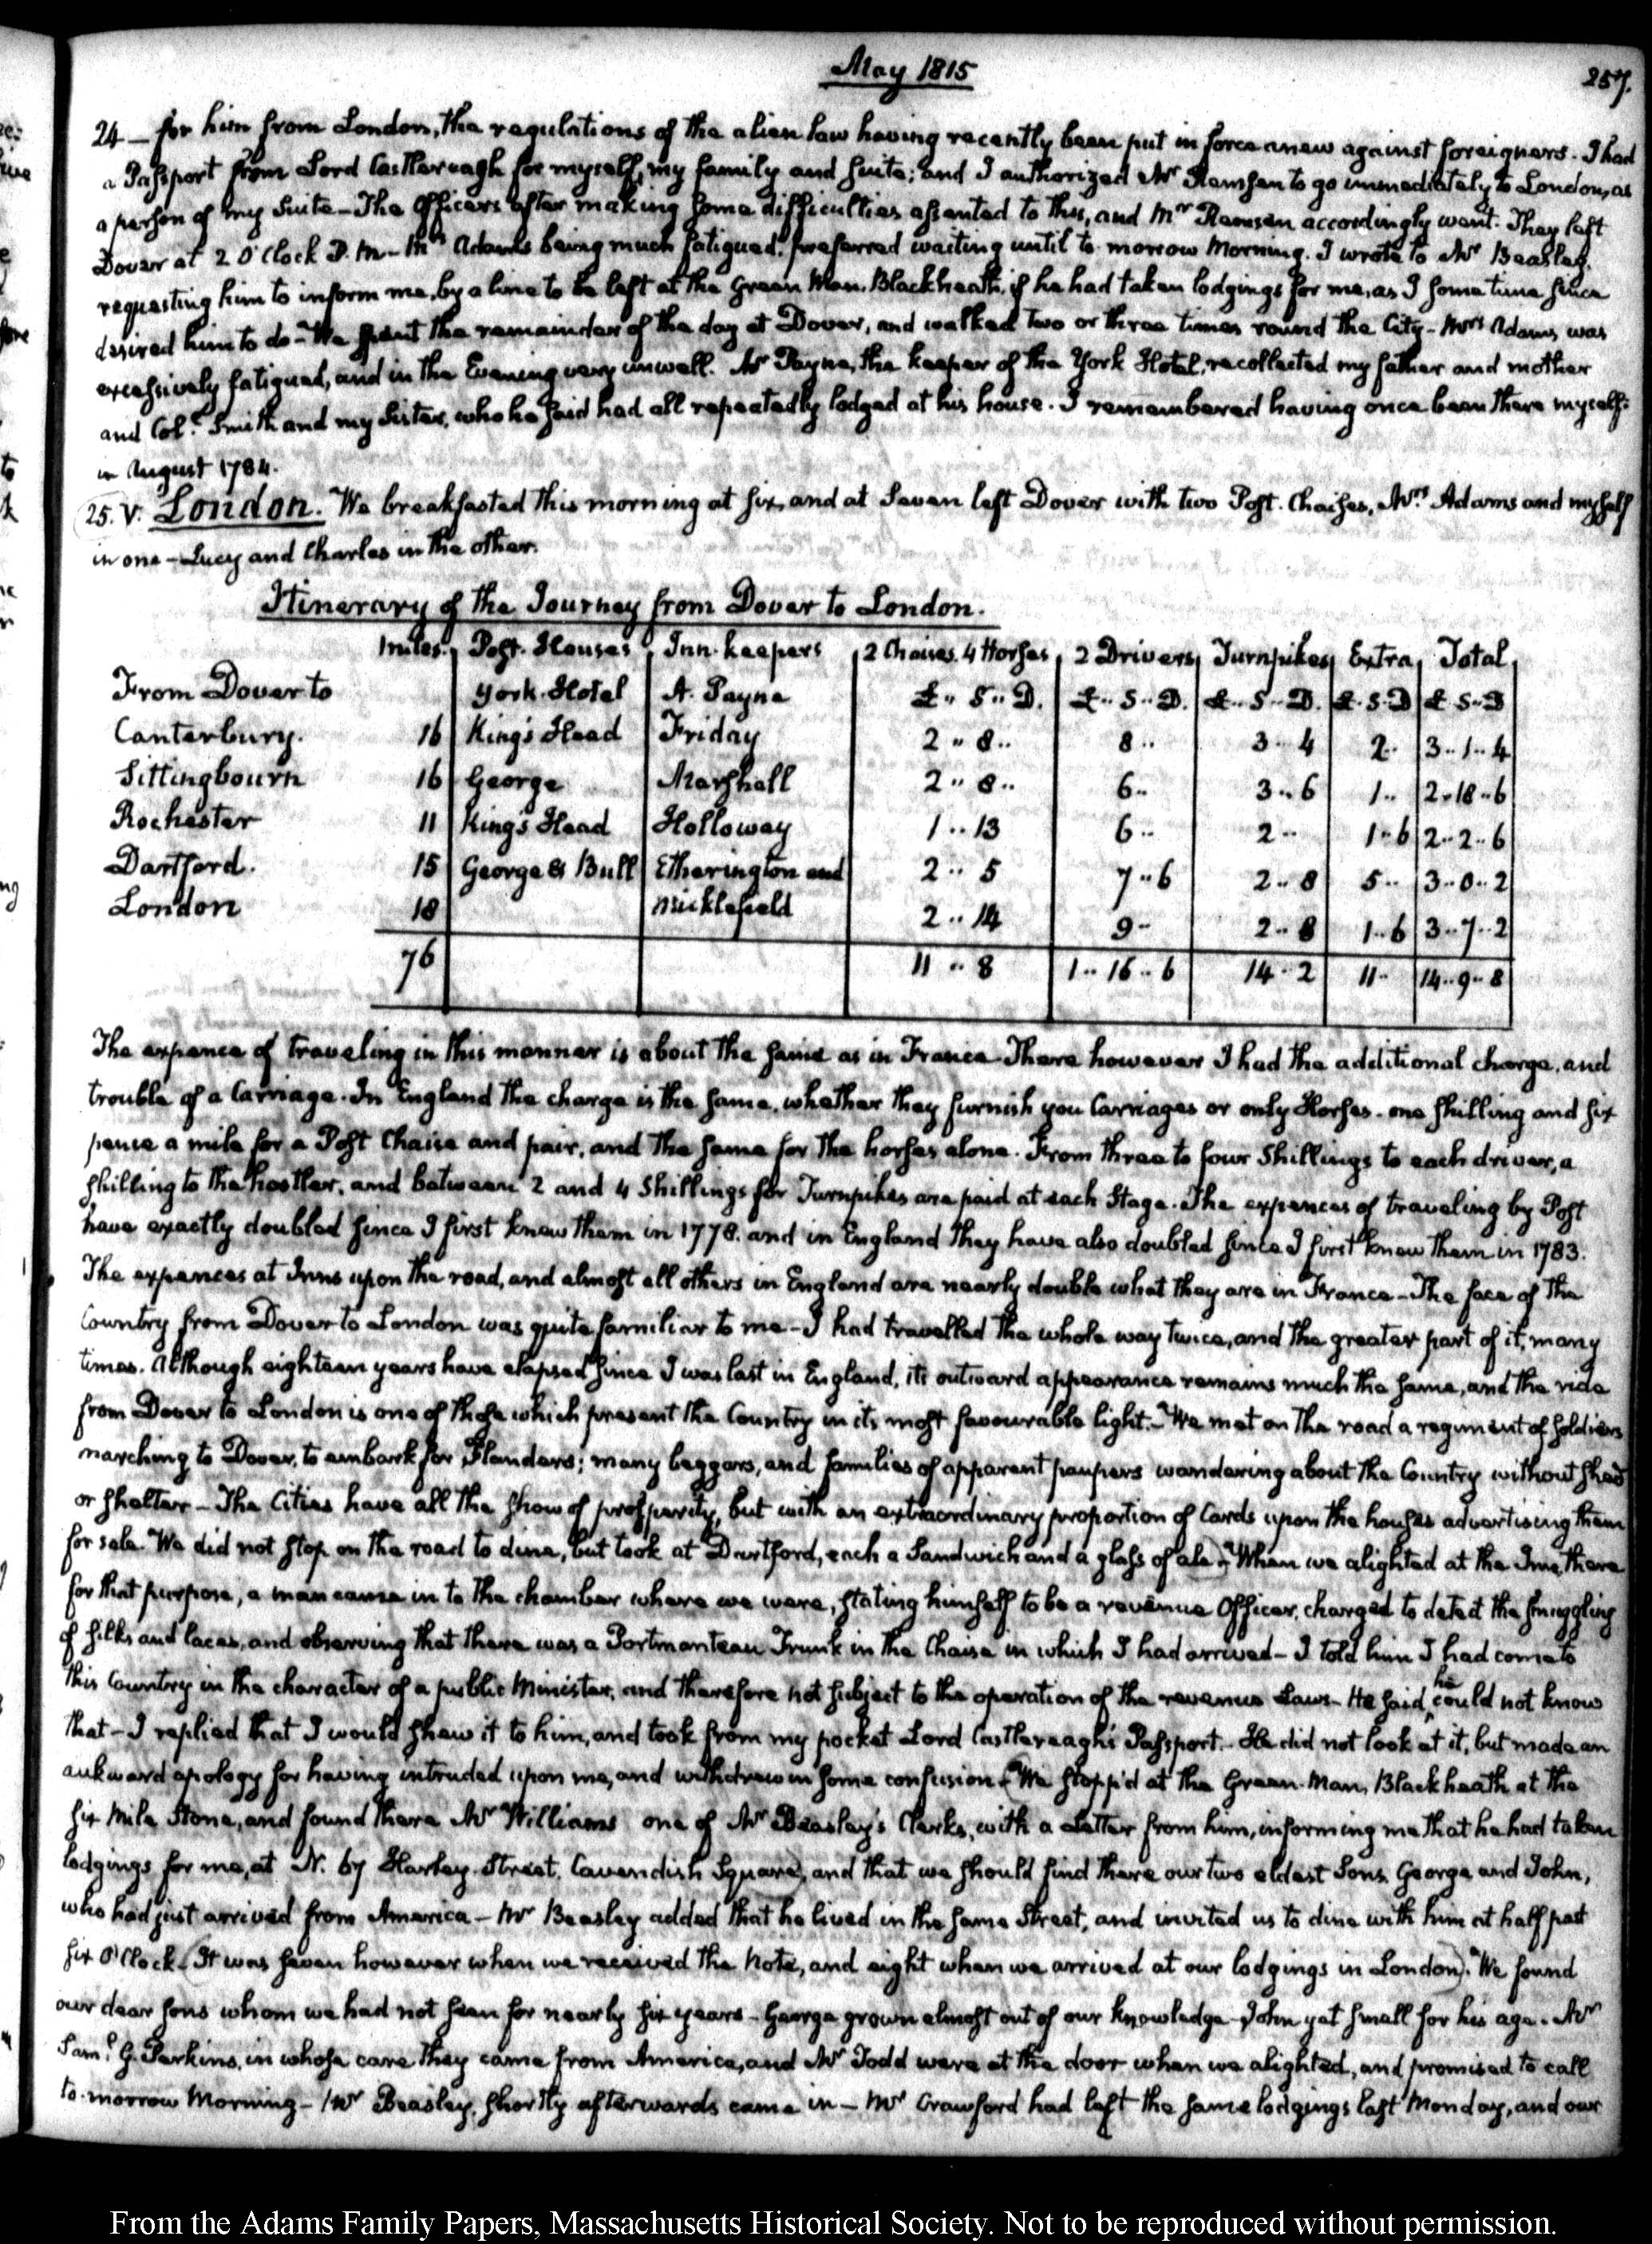 May 1815
257.
24 — for him from London, the regulations of the alien law having recently been put in force anew against foreigners. I had
a Passport from Lord Castlereagh for myself, my family and suite; and I authorized Mr Ramsen to go immediately to London, as
a person of my Suite — The Officers after making some difficulties assented to this, and Mr Ramsen accordingly went. They left
Dover at 2 O'Clock P.M — Mrs Adams being much fatigued, preferred waiting until to-morrow Morning. I wrote to Mr Beasley,
requesting him to inform me, by a line to be left at the Green Man, Blackheath, if he had taken lodgings for me, as I some time since
desired him to do — We spent the remainder of the day at Dover, and walked two or three times round the City — Mrs Adams was
excessively fatigued, and in the Evening very unwell. Mr Payne, the keeper of the York Hotel, recollected my father and mother
and Col: Smith and my Sister, who he said had all repeatedly lodged at his house. I remembered having once been there myself
in August 1784.
25. V. London. We breakfasted this morning at six, and at Seven left Dover with two Post-Chaises, Mrs Adams and myself
in one — Lucy and Charles in the other.
Itinerary of the Journey from Dover to London.
Miles. Post-Houses Inn-keepers 2 Chaises. 4 Horses 2 Drivers Turnpikes Extra Total
From Dover to York-Hotel A. Payne £.. S.. D. £.. S.. D. £.. S.. D. £. S. D £ S.. D
Canterbury. 16 King's Head Friday 2 .. 8.. 8 .. 3 .. 4 2. 3..1..4
Sittingbourn 16 George Marshall 2 .. 8.. 6.. 3..6 1.. 2..18..6
Rochester 11 King's Head Holloway 1 .. 13 6.. 2.. 1..6 2..2..6
Dartford. 15 George & Bull Etherington and 2 .. 5 7..6 2..8 5.. 3..0..2
London 18 Micklefield 2 .. 14 9.. 2..8 1..6 3..7..2
76 11 .. 8 1.. 16.. 6 14..2 11.. 14..9..8
The expence of traveling in this manner is about the same as in France. There however I had the additional charge, and
trouble of a Carriage. In England the charge is the same, whether they furnish you Carriages or only Horses. one shilling and six
pence a mile for a Post Chaise and pair, and the same for the horses alone. From three to four Shillings to each driver, a
shilling to the hostler, and between 2 and 4 Shillings for Turnpikes are paid at each Stage. The expences of traveling by Post
have exactly doubled since I first knew them in 1778. and in England they have also doubled since I first knew them in 1783.
The expences at Inns upon the road, and almost all others in England are nearly double what they are in France — The face of the
Country from Dover to London was quite familiar to me — I had travelled the whole way twice, and the greater part of it, many
times. Although eighteen years have elapsed since I was last in England, its outward appearance remains much the same, and the ride
from Dover to London is one of those which present the Country in its most favourable light. — We met on the road a regiment of soldiers
marching to Dover, to embark for Flanders; many beggars, and families of apparent paupers wandering about the Country without shed
or shelter — The Cities have all the show of prosperity, but with an extraordinary proportion of Cards upon the houses advertising them
for sale. We did not stop on the road to dine, but took at Dartford, each a Sandwich and a glass of ale) — When we alighted at the Inn there
for that purpose, a man came in to the chamber where we were, stating himself to be a revenue Officer, charged to detect the smuggling
of silks and laces, and observing that there was a Portmanteau Trunk in the Chaise in which I had arrived — I told him I had come to
this Country in the character of a public Minister, and therefore not subject to the operation of the revenue Laws — He said, he could not know
that — I replied that I would shew it to him, and took from my pocket Lord Castlereagh's Passport. — He did not look at it, but made an
aukward apology for having intruded upon me, and withdrew in some confusion — (We stopp'd at the Green-Man, Blackheath at the
six mile Stone, and found there Mr Williams one of Mr Beasley's Clerks, with a Letter from him, informing me that he had taken
lodgings for me, at N. 67 Harley-Street, Cavendish Square), and that we should find there our two eldest Sons George and John,
who had just arrived from America — Mr Beasley added that he lived in the same Street, and invited us to dine with him at half past
six O'Clock. (It was seven however when we received the Note, and eight when we arrived at our lodgings in London). We found
our dear sons whom we had not seen for nearly six years — George grown almost out of our knowledge — John yet small for his age. Mr
Saml G. Perkins, in whose care they came from America, and Mr Todd were at the door when we alighted, and promised to call
to-morrow Morning — Mr Beasley, shortly afterwards came in — Mr Crawford had left the same lodgings last Monday, and our
From the Adams Family Papers, Massachusetts Historical Society. Not to be reproduced without permission.